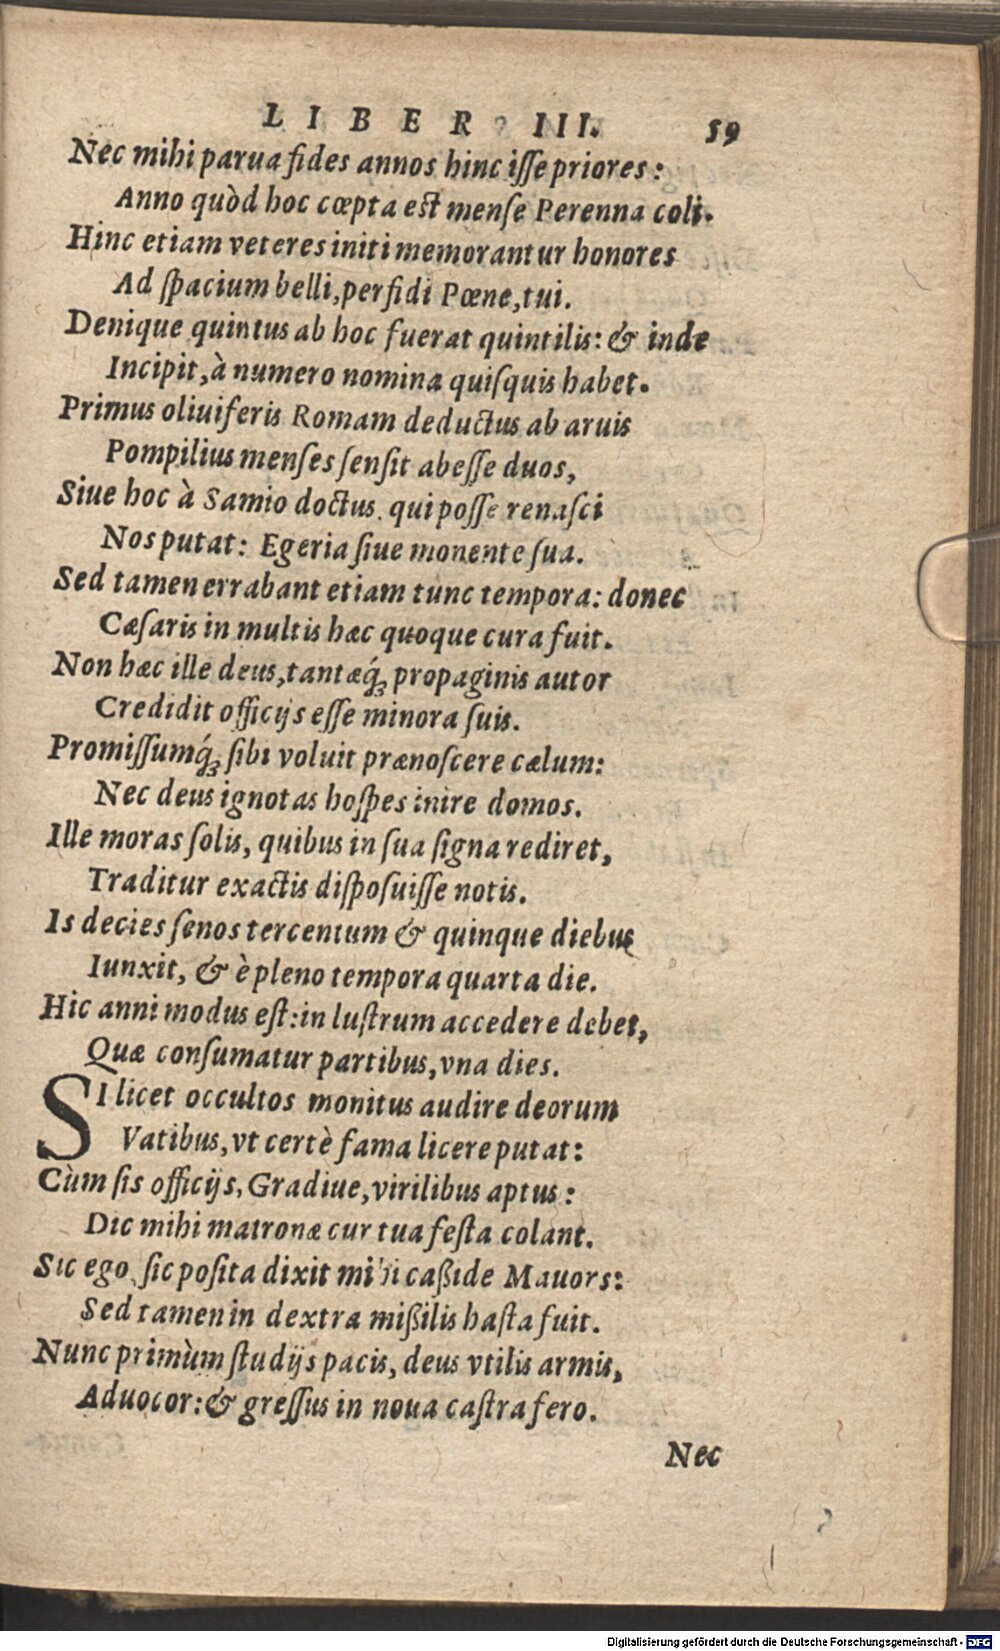 LIBER III. 59
Nec mihi parua fides annos hinc iſſe priores:
Anno quòd hoc cœpta eſt menſe Perenna coli.
Hinc etiam veteres initi memorantur honores
Ad ſpacium belli, perfidi Pœne, tui.
Denique quintus ab hoc fuerat quintilis: & inde
Incipit, à numero nomina quiſquis habet.
Primus oliuiferis Romam deductus ab aruis
Pompilius menſes ſenſit abeſſe duos,
Siue hoc à Samio doctus, qui poſſe renaſci
Nos putat: Egeria ſiue monente ſua.
Sed tamen errabant etiam tunc tempora: donec
Cæſaris in multis hæc quoque cura fuit.
Non hæc ille deus, tantæq́ꝫ propaginis autor
Credidit officijs eſſe minora ſuis.
Promiſſumq́ꝫ ſibi voluit prænoſcere cælum:
Nec deus ignotas hoſpes inire domos.
Ille moras ſolis, quibus in ſua ſigna rediret,
Traditur exactis diſpoſuiſſe notis.
Is decies ſenos tercentum & quinque diebus
Iunxit, & è pleno tempora quarta die.
Hic anni modus eſt: in luſtrum accedere debet,
Quæ conſumatur partibus, vna dies.
SI licet occultos monitus audire deorum
Vatibus, vt certè fama licere putat:
Cùm ſis officijs, Gradiue, virilibus aptus:
Dic mihi matronæ cur tua feſta colant.
Sic ego, ſic poſita dixit mihi caßide Mauors:
Sed tamen in dextra mißilis haſta fuit.
Nunc primùm ſtudijs pacis, deus vtilis armis,
Aduocor: & greſſus in noua caſtra fero.
Nec
Digitalisierung gefördert durch die Deutsche Forschungsgemeinschaft - DFG